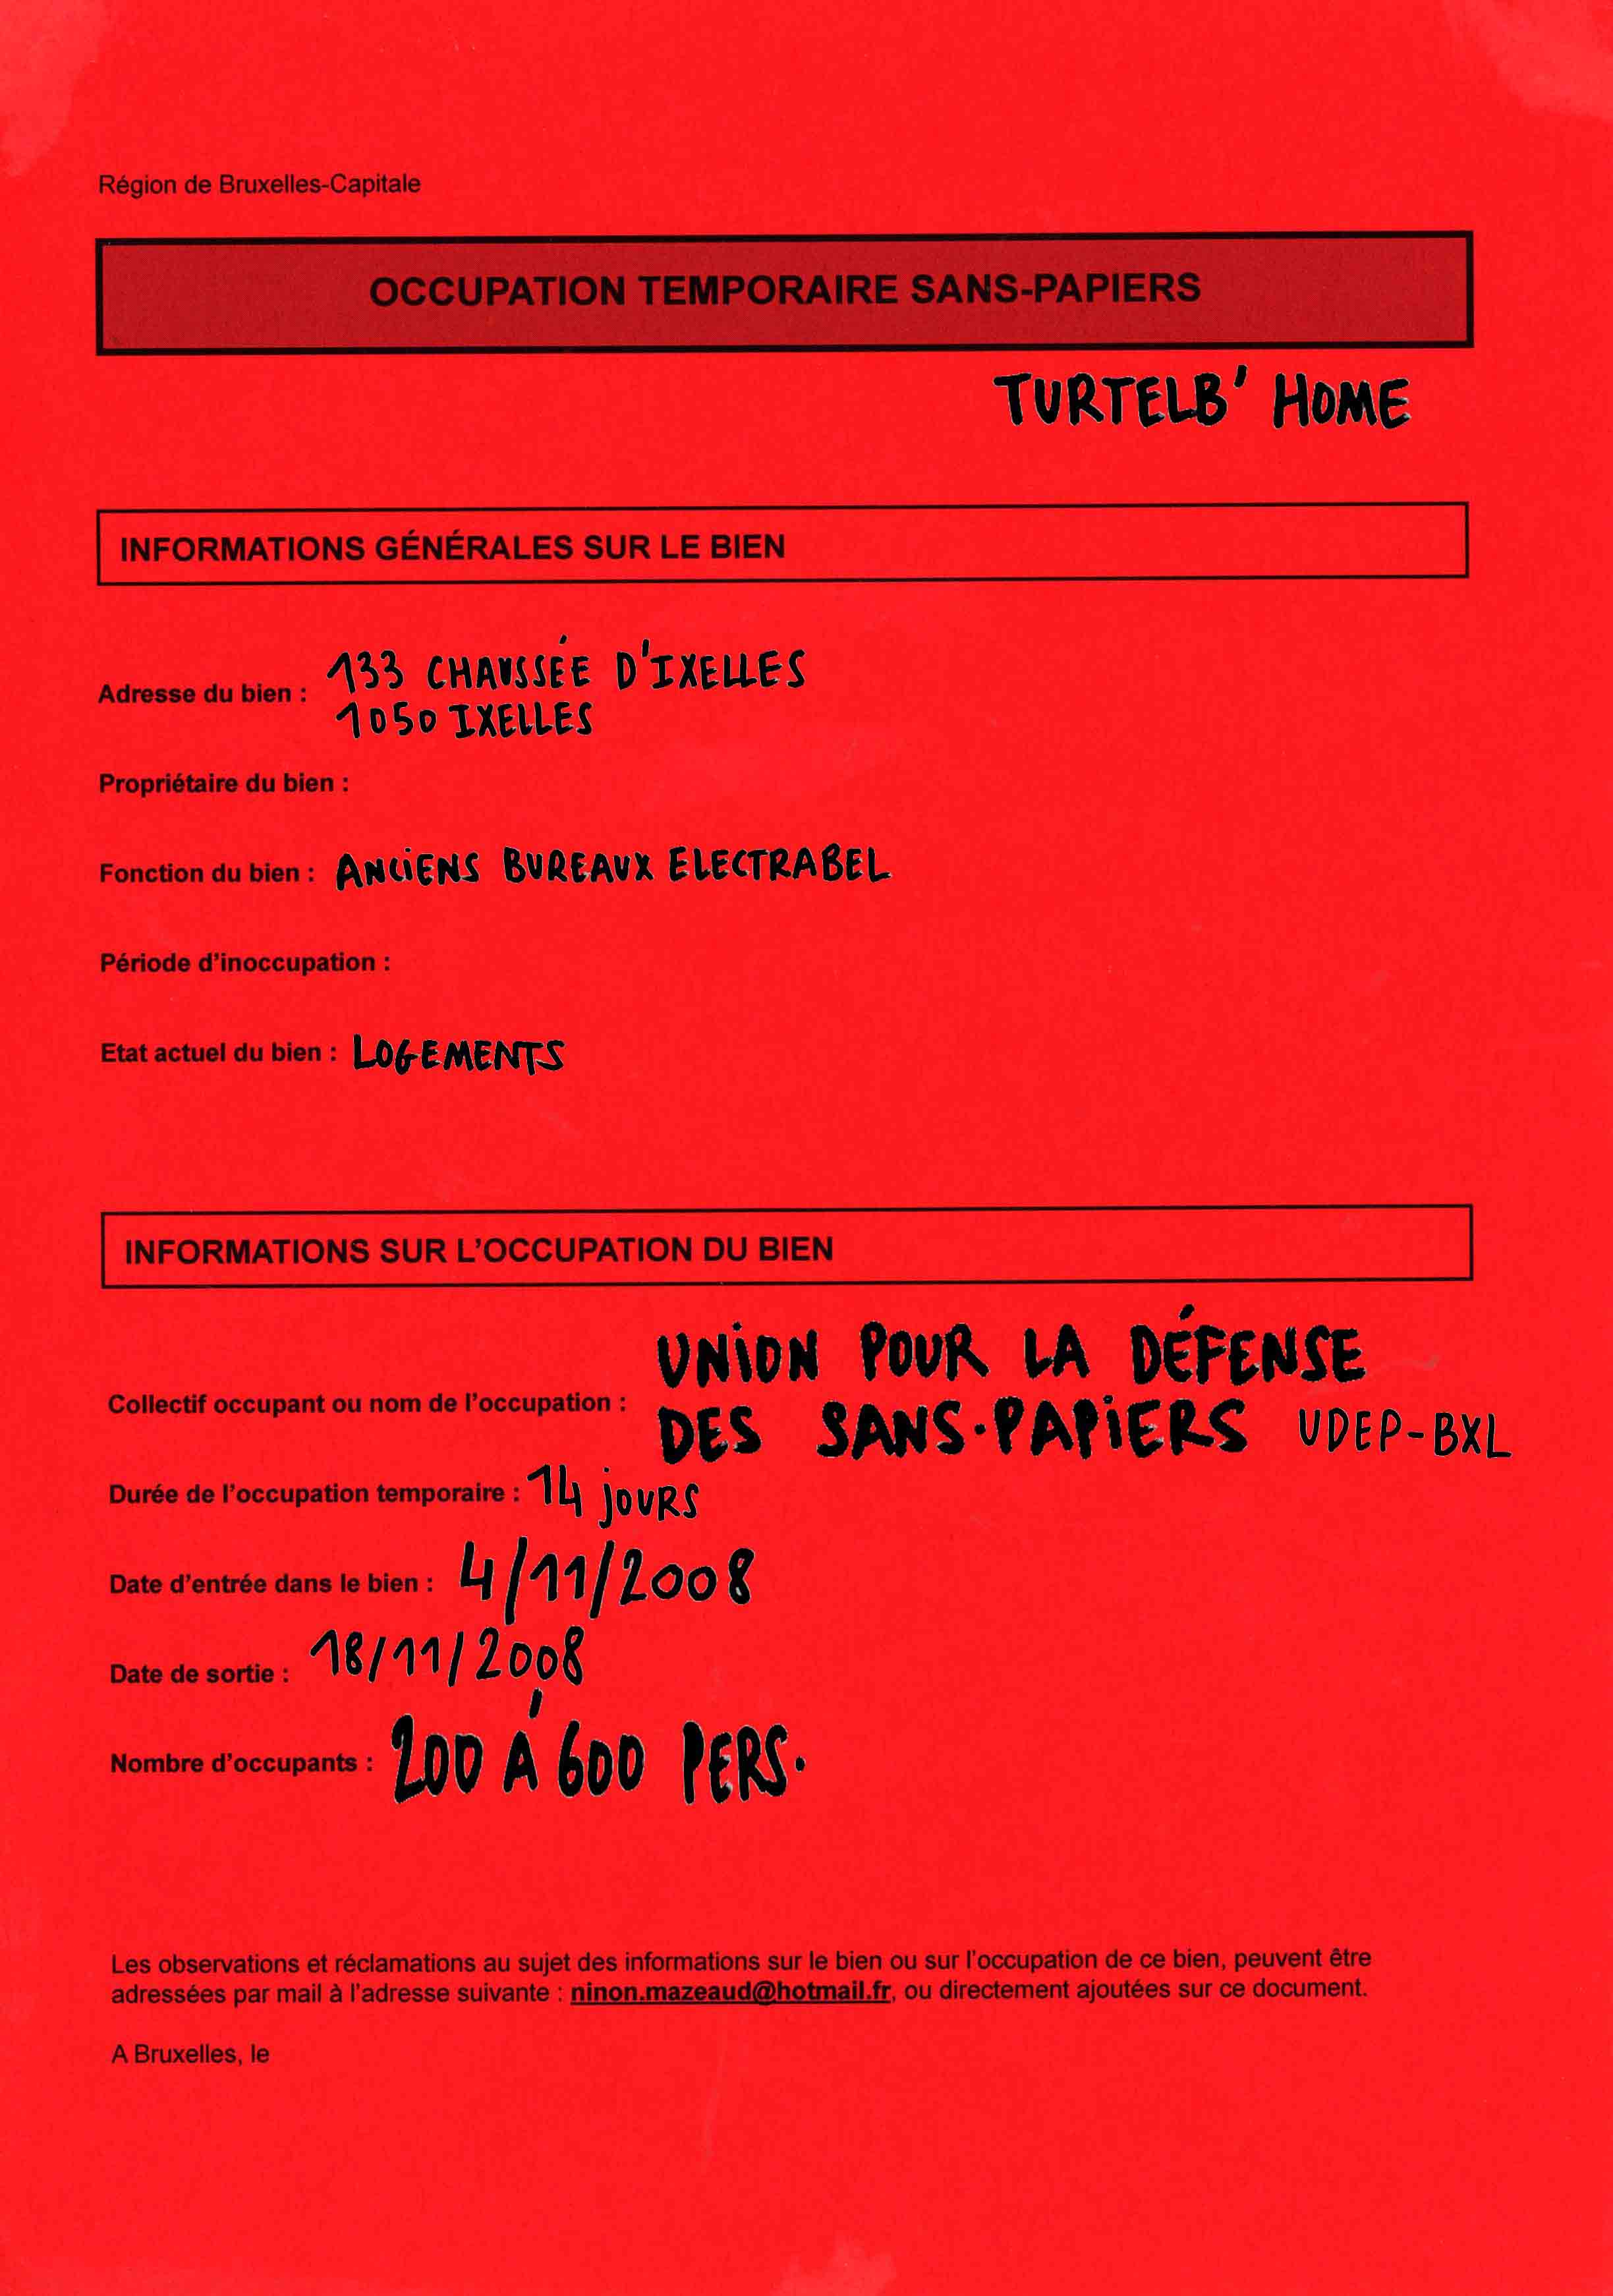 Région de Bruxelles-Capitale
OCCUPATION TEMPORAIRE SANS-PAPIERS
TURTELB' HOME
INFORMATIONS GÉNÉRALES SUR LE BIEN
Adresse du bien : 133 CHAUSSÉE D'IXELLES
1050 IXELLES
Propriétaire du bien :
Fonction du bien : ANCIENS BUREAUX ELECTRABEL
Période d'inoccupation :
Etat actuel du bien : LOGEMENTS
INFORMATIONS SUR L'OCCUPATION DU BIEN
Collectif occupant ou nom de l'occupation : UNION POUR LA DÉFENSE
DES SANS-PAPIERS UDEP-BXL
Durée de l'occupation temporaire : 14 JOURS
Date d'entrée dans le bien : 4/11/2008
Date de sortie : 18/11/2008
Nombre d'occupants : 200 À 600 PERS.
Les observations et réclamations au sujet des informations sur le bien ou sur l'occupation de ce bien, peuvent être
adressées par mail à l'adresse suivante : ninon.mazeaud@hotmail.fr, ou directement ajoutées sur ce document.
A Bruxelles, le